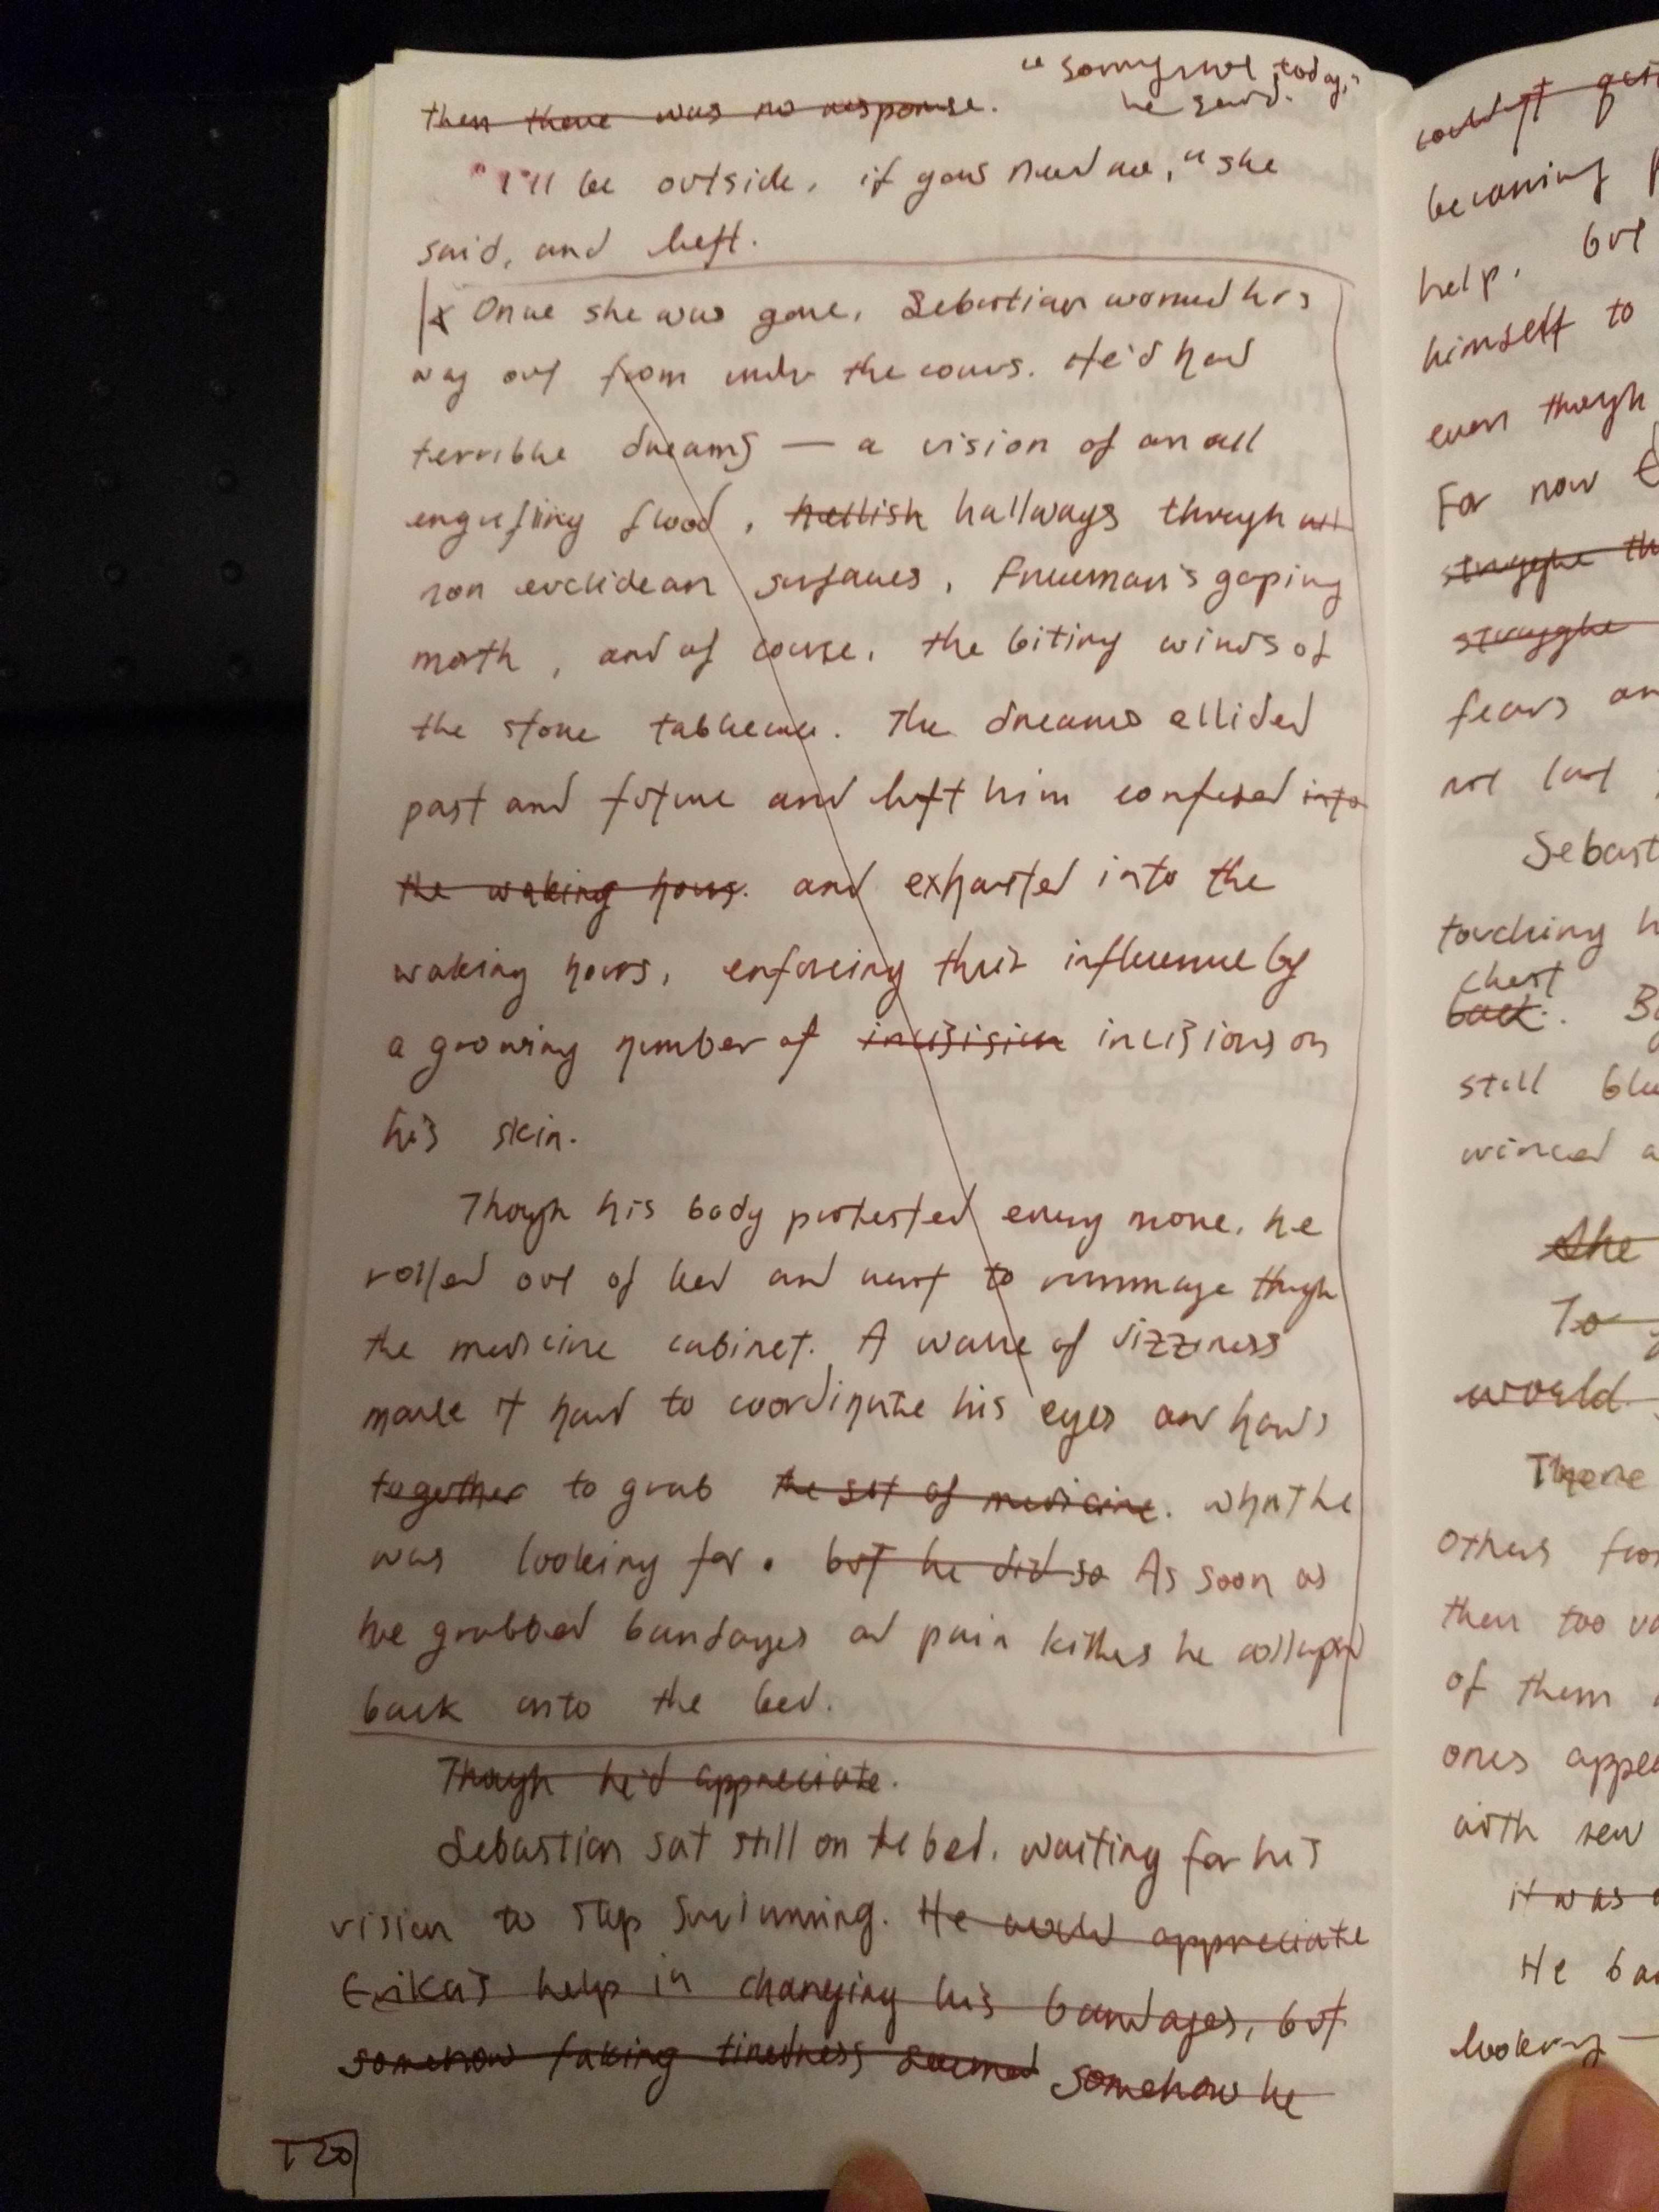 "sorry not today,"
he said.
then there was no response.
"I'll be outside, if you need me," she
said, and left.
x Once she was gone, Sebastian wormed his
way out from under the covers. He'd had
terrible dreams — a vision of an all
engulfing flood, hellish hallways through all
non euclidean surfaces, Freeman's gaping
mouth, and of course, the biting winds of
the stone tableau. The dreams ellided
past and future and left him confused into
the waking hours. and exhausted into the
waking hours, enforcing their influence by
a growing number of incisision incisions on
his skin.
Though his body protested every move, he
rolled out of bed and went to rummage though
the medicine cabinet. A wave of dizziness
made it hard to coordinate his eyes and hands
together to grab the set of medicine. what he
was looking for. but he did so As soon as
he grabbed bandages and pain killers he collapsed
back onto the bed.
Though he'd appreciate.
Sebastian sat still on the bed, waiting for his
vision to stop swimming. He would appreciate
Erika's help in changing his bandages, but
somehow faking tiredness seemed somehow he
120
becoming
help. but
himself to
even though
For now
struggle
fears
not
Sebast
touching
chest
back.
still
winced
She
To
world.
There
others
then too
of them
ones
with
it was
He
looking —